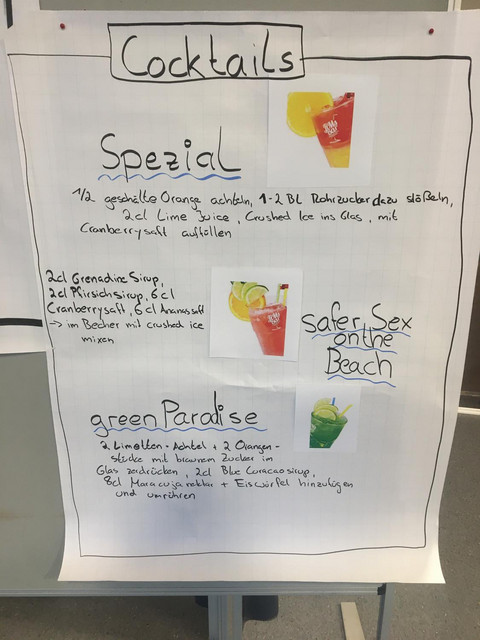 Cocktails
Spezial
1/2 geschälte Orange achteln, 1-2 BL Rohrzucker dazu stößeln,
2cl Lime Juice, Crushed Ice ins Glas, mit
Cranberrysaft auffüllen
2cl Grenadine Sirup,
2cl Pfirsichsirup, 6cl
Cranberrysaft, 6cl Ananassaft
→ im Becher mit crushed ice
mixen
Safer Sex
on the
Beach
green Paradise
2 Limetten-Achtel + 2 Orangen-
stücke mit braunem Zucker im
Glas zerdrücken, 2cl Blue Curacaosirup,
8cl Maracujanektar + Eiswürfel hinzufügen
und umrühren